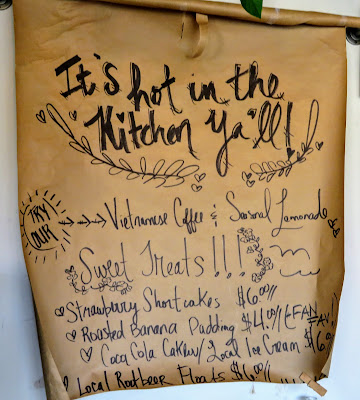 It's hot in the
Kitchen Ya'll!
TRY OUR
Vietnamese Coffee & Seasonal Lemonade
Sweet Treats!!!
Strawberry Shortcakes $6.00//
Roasted Banana Pudding $4.00// EFAN FAV!
Coca Cola Cake w/ Local Ice Cream $6
Local Rootbeer Floats $6.00//